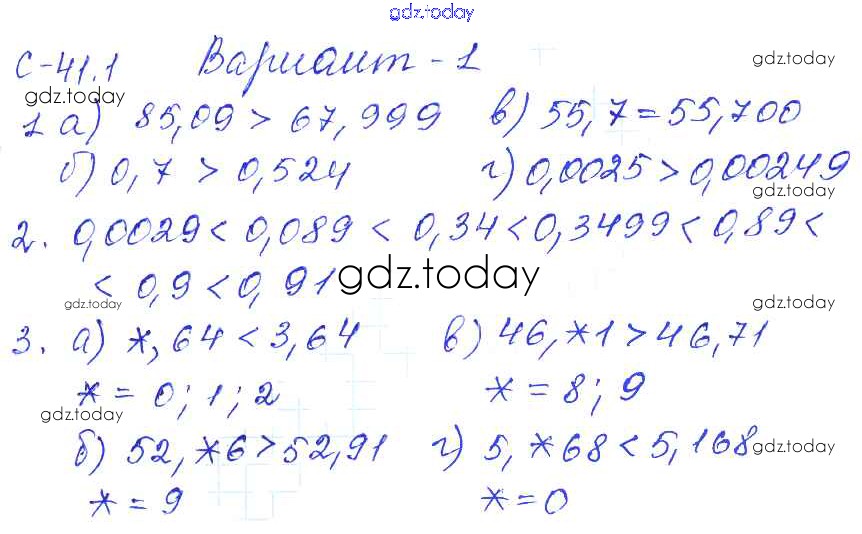 gdz.today
С-41.1 Вариант-1
gdz.today
gdz.today
1 а) 85,09 > 67,999 в) 55,7 = 55,700
б) 0,7 > 0,524 г) 0,0025 > 0,00249
gdz.today
2. 0,0029 < 0,089 < 0,34 < 0,3499 < 0,89 <
< 0,9 < 0,91
gdz.today
gdz.today
gdz.today
3. а) *,64 < 3,64 в) 46,*1 > 46,71
* = 0; 1; 2 * = 8; 9
gdz.today
б) 52,*6 > 52,91 г) 5,*68 < 5,168
gdz.today
* = 9 * = 0